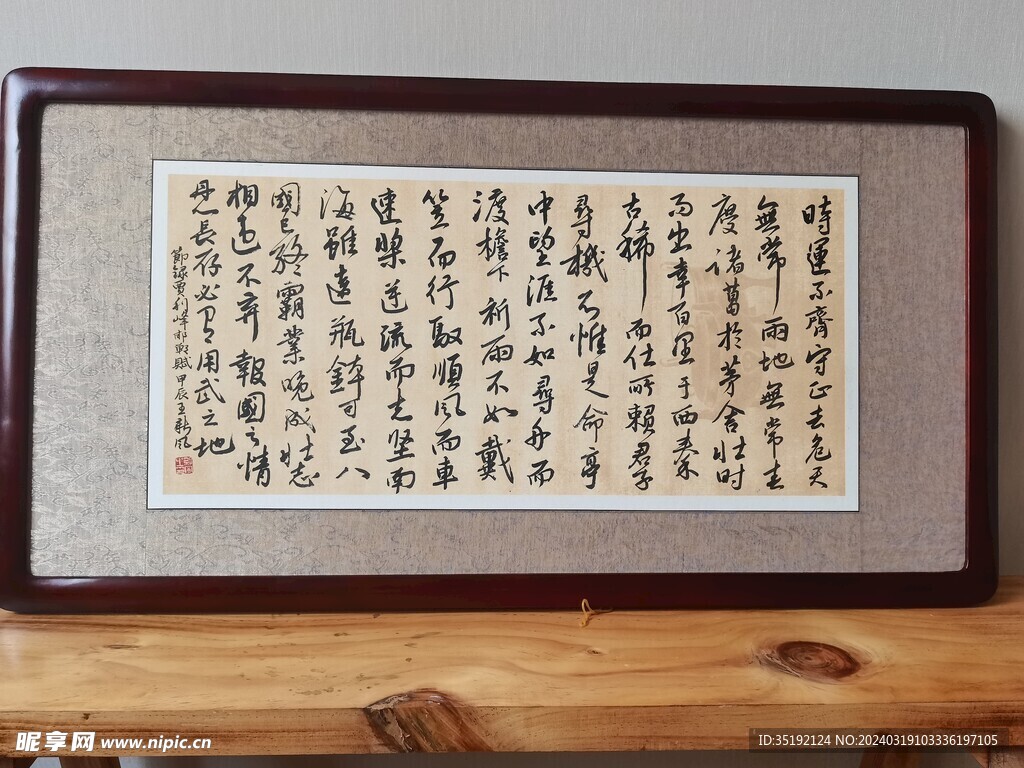 時運不齊守正去危天
無常雨地無常主
度诸葛於茅舍壮时
而出幸百里于西秦
古稀而仕所賴君子
尋機不惟是命亭
中望涯不如尋舟而
渡檐下祈雨不如戴
笠而行馭順風而車
速槳逆流而志堅南
海雖遠瓶鉢可至八
國已終霸業晚成壮志
相遇不弃報國之情
長存必有用武之地
節錄
甲辰
昵享网 www.nipic.cn
ID:35192124 NO:20240319103336197105